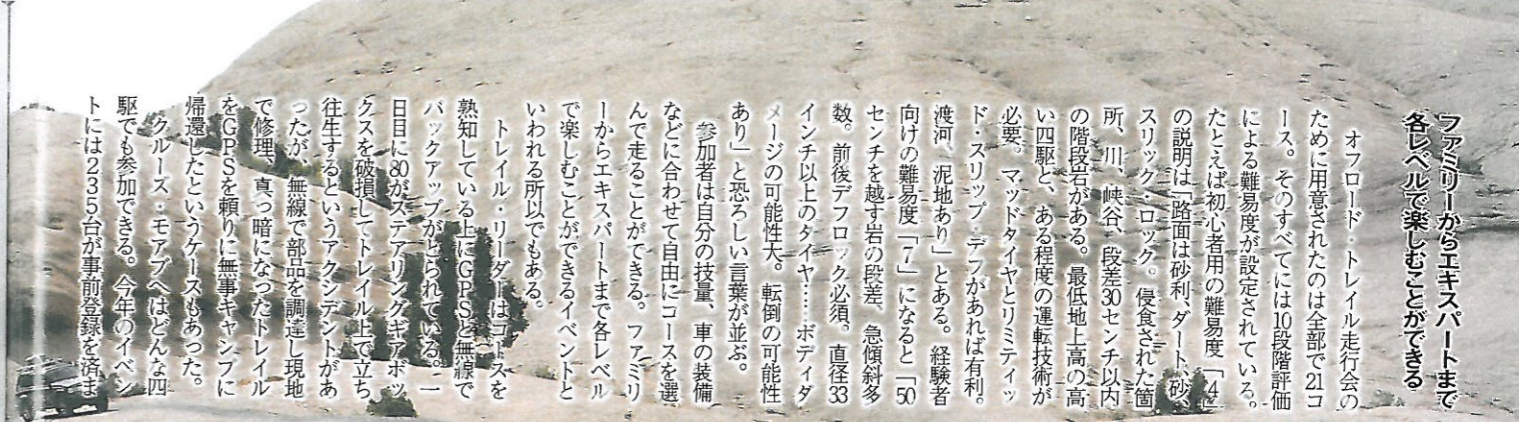 ファミリーからエキスパートまで
各レベルで楽しむことができる
オフロード・トレイル走行会の
ために用意されたのは全部で21コ
ース。そのすべてには10段階評価
による難易度が設定されている。
たとえば初心者用の難易度「4」
の説明は「路面は砂利、ダート、砂、
スリック・ロック。侵食された箇
所、川、峡谷、段差30センチ以内
の階段岩がある。最低地上高の高
い四駆と、ある程度の運転技術が
必要。マッドタイヤとリミティッ
ド・スリップ・デフがあれば有利。
渡河、泥地あり」とある。経験者
向けの難易度「7」になると「50
センチを越す岩の段差、急傾斜多
数。前後デフロック必須。直径33
インチ以上のタイヤ……ボディダ
メージの可能性大。転倒の可能性
あり」と恐ろしい言葉が並ぶ。
参加者は自分の技量、車の装備
などに合わせて自由にコースを選
んで走ることができる。ファミリ
ーからエキスパートまで各レベル
で楽しむことができるイベントと
いわれる所以でもある。
トレイル・リーダーはコースを
熟知している上にGPSと無線で
バックアップがとられている。一
日目に80がステアリングギアボッ
クスを破損してトレイル上で立ち
往生するというアクシデントがあ
ったが、無線で部品を調達し現地
で修理、真っ暗になったトレイル
をGPSを頼りに無事キャンプに
帰還したというケースもあった。
クルーズ・モアブへはどんな四
駆でも参加できる。今年のイベン
トには235台が事前登録を済ま